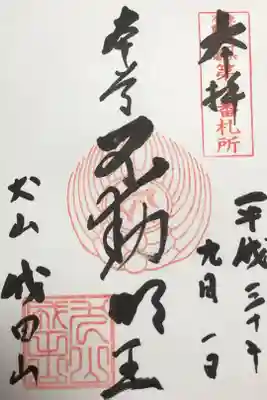 奉拝
番札所
平成三十年
九月一日
本尊不動明王
犬山成田山